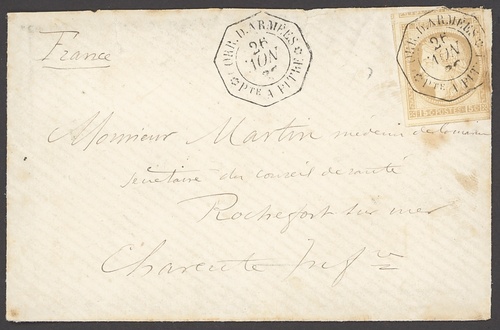 France
CORR. D. ARMÉES
26
PTE A PITRE
CORR. D. ARMÉES
26
PTE A PITRE
15 C. POSTES 15 C.
Monsieur Martin médecin de la marine
secrétaire du conseil de santé
Rochefort sur mer
Charente Infre